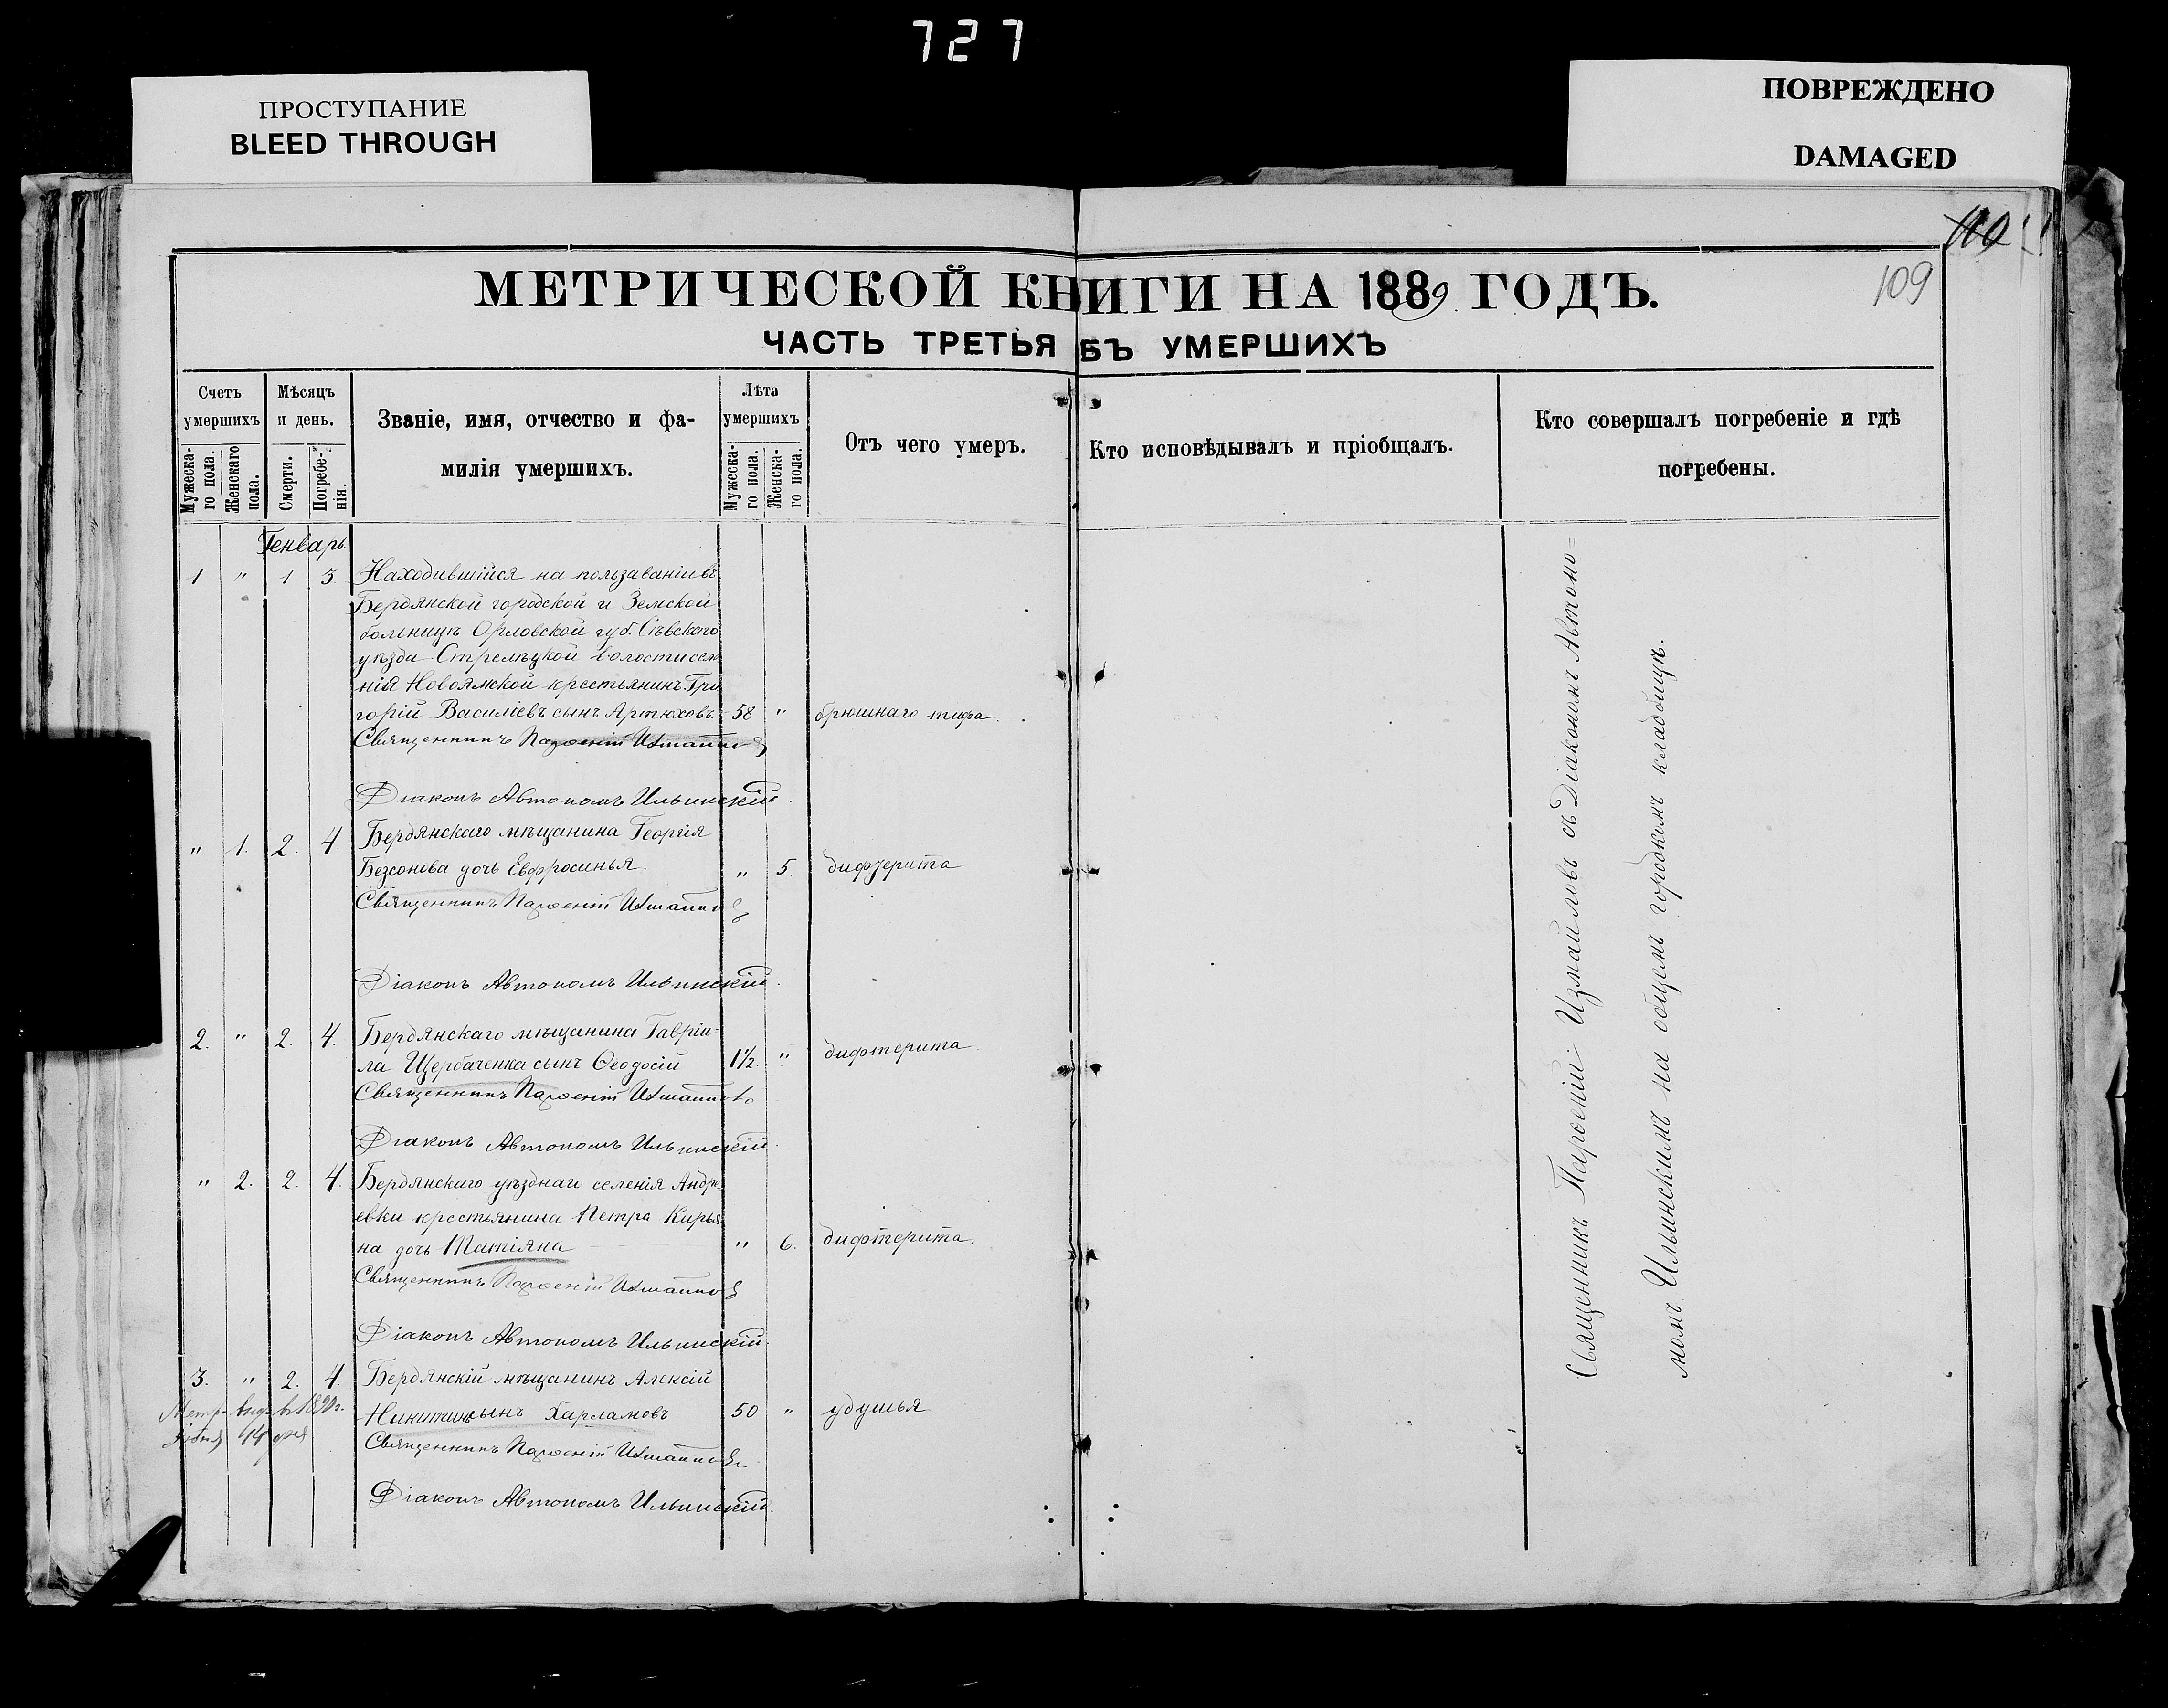 727
ПРОСТУПАНИЕ
BLEED THROUGH
ПОВРЕЖДЕНО
DAMAGED
110
109
МЕТРИЧЕСКОЙ КНИГИ НА 1889 ГОДЪ.
ЧАСТЬ ТРЕТЬЯ БЪ УМЕРШИХЪ
Счетъ умершихъ
Мужеска-го пола.
Женскаго пола.
Мѣсяцъ и день.
Смерти.
Погребе-нія.
Званіе, имя, отчество и фа-
милія умершихъ.
Лѣта умершихъ
Мужеска-го пола.
Женска-го пола.
Отъ чего умеръ.
Кто исповѣдывалъ и пріобщалъ.
Кто совершалъ погребеніе и гдѣ
погребены.
Генварь
1 " 1 3 Находившійся на пользаваніи въ
Бердянской городской и Земской
больницѣ Орловской губ. Сѣвскаго
уѣзда Стрелѣцкой волости селе
нія Новоямской крестьянинъ Гри
горій Василіевъ сынъ Артюховъ. 58 " брюшнаго тифа.
Священникъ Парѳеній Измаиловъ
Діаконъ Автономъ Ильинскій.
" 1. 2. 4. Бердянскаго мѣщанина Георгія
Безсонова дочь Евфросинья. " 5. дифтерита
Священникъ Парѳеній Измаиловъ
Діаконъ Автономъ Ильинскій.
2. " 2. 4. Бердянскаго мѣщанина Гавріи-
ла Щербаченка сынъ Ѳеодосій 1½ " дифтерита
Священникъ Парѳеній Измаиловъ
Діаконъ Автономъ Ильинскій.
" 2. 2. 4. Бердянскаго уѣзднаго селенія Андре-
евки крестьянина Петра Кирья
на дочь Татіяна " 6. дифтерита.
Священникъ Парѳеній Измаиловъ
Діаконъ Автономъ Ильинскій.
3. " 2. 4. Бердянскій мѣщанинъ Алексій
Никитинъ сынъ Харламовъ 50 " удушья
Метр. выд. в 1890 г.
14 дня
Священникъ Парѳеній Измаиловъ
Діаконъ Автономъ Ильинскій.
Священникъ Парѳеній Измаиловъ съ Діакономъ Автоно=
момъ Ильинскимъ на общемъ городскомъ кладбищѣ.